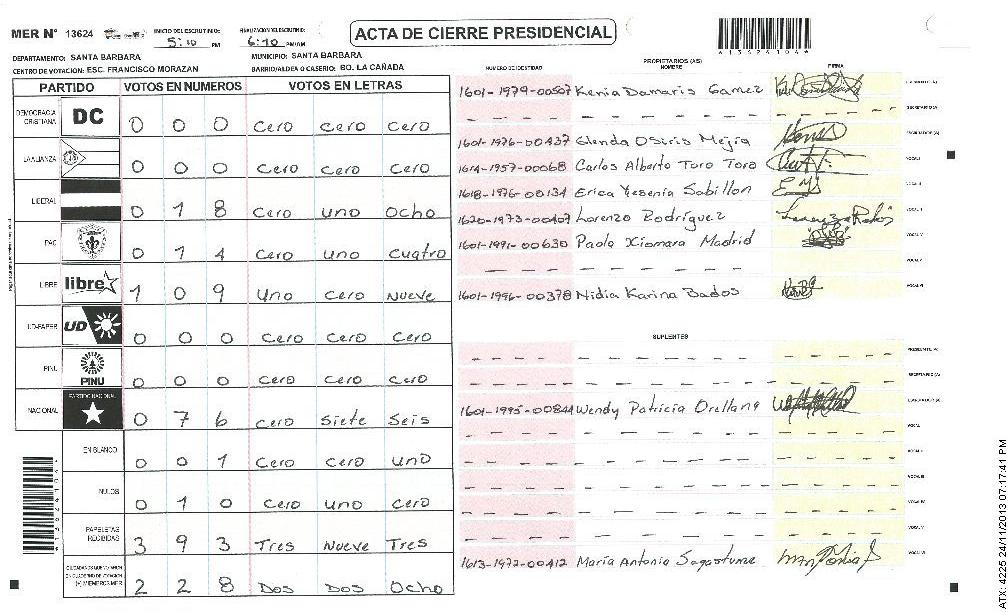 MER N° 13624
INICIO DEL ESCRUTINIO: 5:10 PM
FINALIZACION DEL ESCRUTINIO: 6:10 PM/AM
ACTA DE CIERRE PRESIDENCIAL
13624104
DEPARTAMENTO: SANTA BARBARA
MUNICIPIO: SANTA BARBARA
CENTRO DE VOTACION: ESC. FRANCISCO MORAZAN
BARRIO/ALDEA O CASERIO: BO. LA CAÑADA
PARTIDO VOTOS EN NUMEROS VOTOS EN LETRAS
DEMOCRACIA CRISTIANA DC 0 0 0 Cero cero cero
LA ALIANZA 0 0 0 Cero Cero Cero
LIBERAL 0 1 8 Cero uno Ocho
PAC 0 1 4 Cero uno cuatro
LIBRE libre 1 0 9 Uno Cero Nueve
UD-FAPER UD 0 0 0 Cero Cero Cero
PINU PINU 0 0 0 Cero Cero Cero
NACIONAL PARTIDO NACIONAL 0 7 6 Cero Siete Seis
EN BLANCO 0 0 1 Cero Cero uno
NULOS 0 1 0 Cero uno Cero
PAPELETAS RECIBIDAS 3 9 3 Tres Nueve Tres
CIUDADANOS QUE VOTARON EN CUADERNO DE VOTACION (+) MIEMBROS MER 2 2 8 Dos Dos Ocho
PROPIETARIOS (AS)
NUMERO DE IDENTIDAD NOMBRE FIRMA
1601-1979-00507 Kenia Damaris Gamez
SECRETARIO (A)
1601-1976-00437 Glenda Osiris Mejia ESCRUTADOR (A)
1614-1957-00068 Carlos Alberto Toro Toro VOCAL I
1618-1976-00134 Erica Yesenia Sabillon
1620-1973-00407 Lorenzo Rodriguez
1601-1991-00630 Paola Xiomara Madrid
1601-1996-00378 Nidia Karina Bados
SUPLENTES
PRESIDENTE (A)
SECRETARIO (A)
1601-1995-00844 Wendy Patricia Orellana ESCRUTADOR (A)
1613-1972-00412 Maria Antonia Sagastume
ATX: 4225 24/11/2013 07:17:41 PM